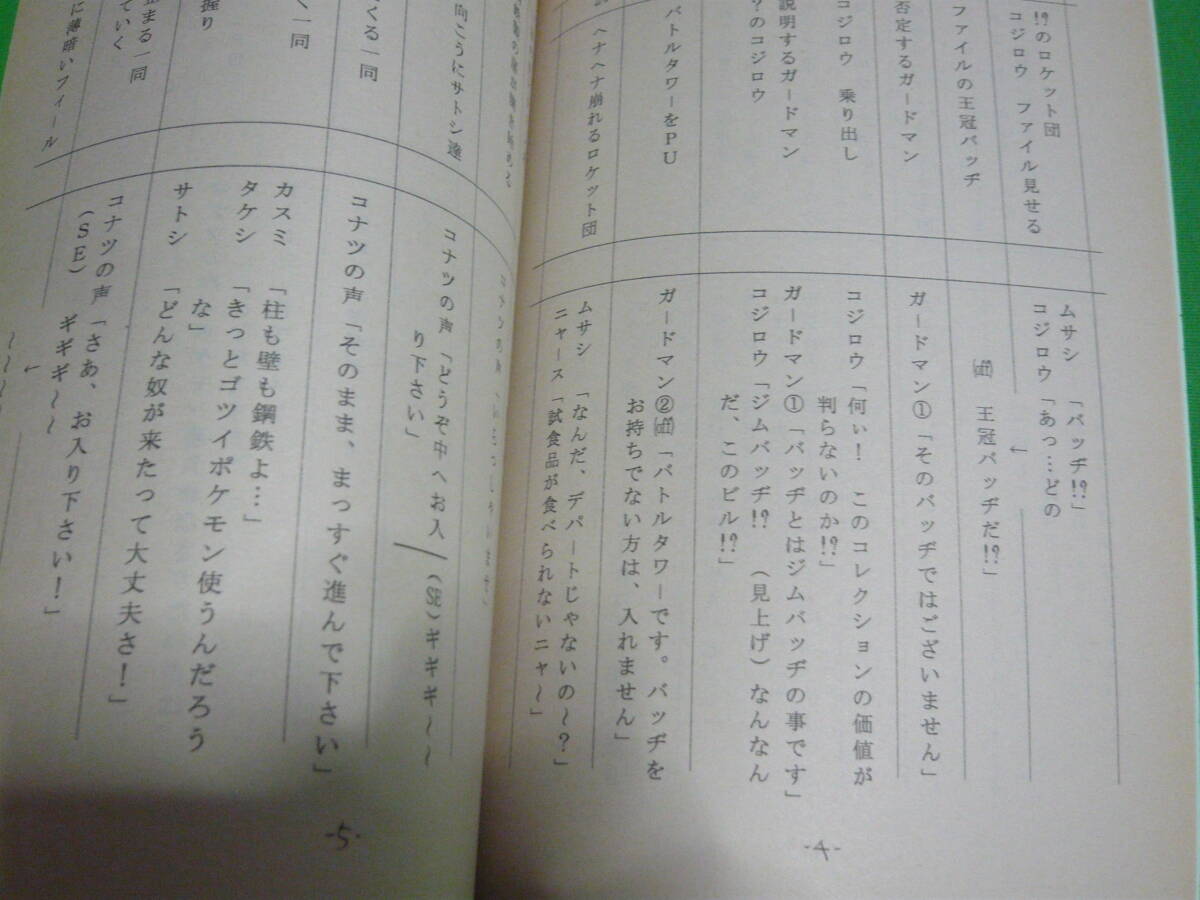 !?のロケット団
コジロウ　ファイル見せる
ファイルの王冠バッヂ
否定するガードマン
コジロウ　乗り出し
説明するガードマン
?のコジロウ
バトルタワーをPU
ヘナヘナ崩れるロケット団
ムサシ　「バッヂ!?」
コジロウ「あっ…どの
↓
(off)　王冠バッヂだ!?」
ガードマン①「そのバッヂではございません」
コジロウ「何ぃ！　このコレクションの価値が
判らないのか!?」
ガードマン①「バッヂとはジムバッヂの事です」
コジロウ「ジムバッヂ!?　（見上げ）なんなん
だ、このビル!?」
ガードマン②(off)「バトルタワーです。バッヂを
お持ちでない方は、入れません」
ムサシ　「なんだ、デパートじゃないの～？」
ニャース「試食品が食べられないニャ～」
-4-
向こうにサトシ達
くる一同
握り
く一同
止まる一同
ていく
に薄暗いフィール
コナツの声「どうぞ中へお入
り下さい」
(SE)ギギギ～～
コナツの声「そのまま、まっすぐ進んで下さい」
カスミ　「柱も壁も鋼鉄よ…」
タケシ　「きっとゴツイポケモン使うんだろう
な」
サトシ　「どんな奴が来たって大丈夫さ！」
コナツの声「さあ、お入り下さい！」
（SE）ギギギ～～
↓
-5-